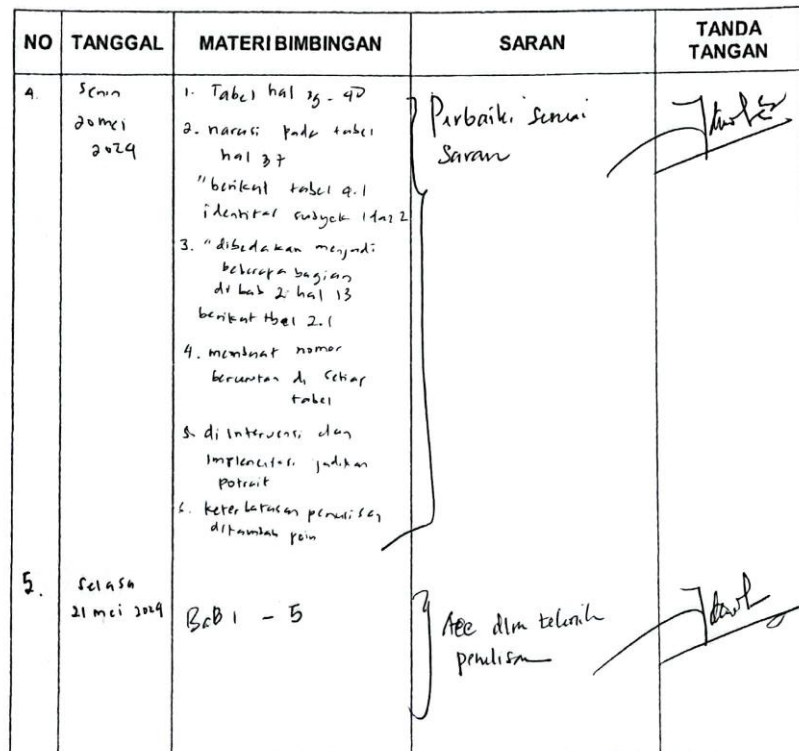 NO TANGGAL MATERI BIMBINGAN SARAN TANDA TANGAN
4.
Senin
20 mei
2024
1. Tabel hal 39 - 40
2. narasi pada tabel
hal 37
"berikut tabel 4.1
identitas subyek 1 dan 2
3. "dibedakan menjadi
beberapa bagian
di bab 2 hal 13
berikut tbel 2.1
4. membuat nomor
berurutan di setiap
tabel
5. di Intervensi dan
Implementasi jadikan
potrait
6. keterbatasan penulisan
ditambah poin
Perbaiki sesuai
Saran
5.
Selasa
21 mei 2024
BAB 1 - 5
Acc dlm teknik
penulisan